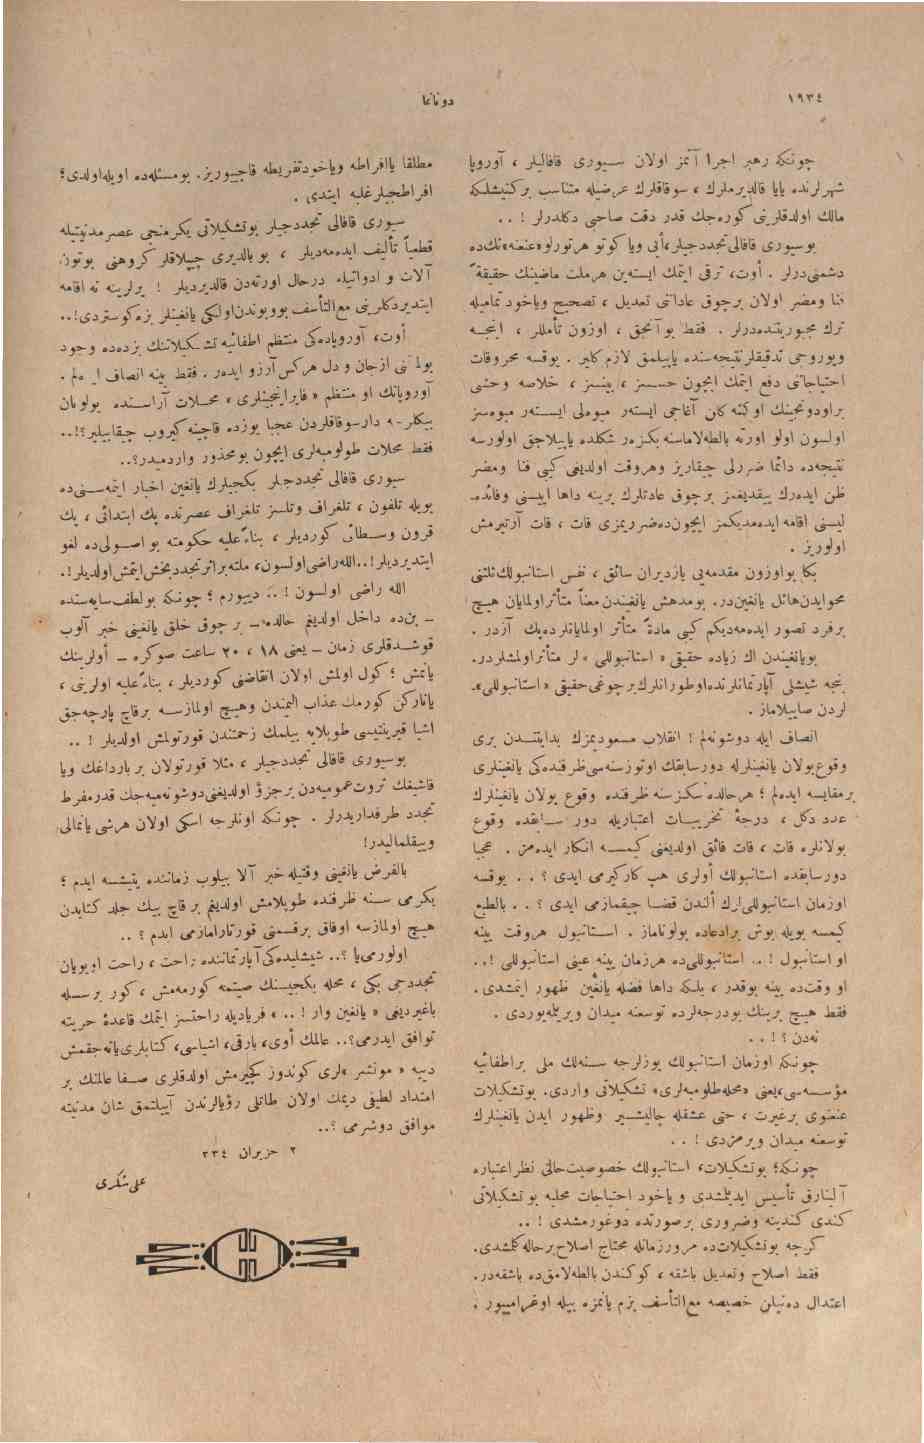 ١٩٣٤
دونانما
چونكه رهبر اجرا آتمز اولان سيورى قافاليلر ، آوروپا
شهرلرنده يايا قالديرملرك ، سوقاقلرك عرضيله متناسب بر كنيشلكه
مالك اولدقلرينى كوره‌جك قدر دقت صاحبى دكلدرلر ! . .
بو سيورى قافالى تجدد جيلر ، أيى ويا كوتو هر تورلو «عنعنه» نك ده
دشمنى درلر . أوت ، ترقى ايتمك ايسته‌ين هر ملت ماضينك حقيقةً
فنا ومضر اولان بر چوق عاداتنى تعديل ، تصحيح وياخود تماميله
ترك مجبوريتنده‌درلر . فقط بو آنجق ، اوزون تأمللر ، اينجه
ويوروجى تدقيقلر نتيجه‌سنده ياپيلمق لازم كلير . يوقسه محروقات
احتياجاتنى دفع ايتمك ايچون حسسز ، بينسز ، خلاصه وحشى
بر اودونجينك اوكنه كلن آغاجى ايستر ميوه‌لى ايستر ميوه‌سز
اولسون اولو اورته بالطه‌لاماسنه بكزر شكلده ياپيلاجق اولورسه
نتيجه‌ده دائما ضررلى چيقاريز وهر وقت اولديغى كبى فنا ومضر
ظن ايده‌رك ييقديغمز بر چوق عادتلرك يرينه داها اييسنى وفائده‌-
ليسنى اقامه ايده‌مديكمز ايچون ده ضرريمزى قات ، قات آرتيرمش
اولوريز .
بكا بو اوزون مقدمه‌يى يازديران سائق ، نفس استانبولك ثلثنى
محو ايدن هائل يانغين‌در. بو مدهش يانغيندن معناً متأثر اولمايان هيچ
بر فرد تصور ايده‌مه‌ديكم كبى مادةً متأثر اولمايانلر ده پك آزدر .
بو يانغيندن اك زياده حقيقى « استانبوللى » لر متأثر اولمشلردر.
نجه شيشلى آپارتمانلرنده اوطورانلرك بر چوغى حقيقى « استانبوللى »-
لردن صاييلاماز .
انصاف ايله دوشونه‌لم ! انقلاب مسعوديمزك بدايتندن برى
وقوع بولان يانغينلرله دور سابقك اوتوز سنه‌سى ظرفنده‌كى يانغينلرى
بر مقايسه ايده‌لم ؛ هر حالده سكز سنه ظرفنده وقوع بولان يانغينلرك
عدد دكل ، درجۀ تخريبات اعتباريله دور سابقده وقوع
بولانلره قات ، قات فائق اولديغنى كيمسه انكار ايده‌مز . عجبا
دور سابقده استانبولك أولرى هپ كاركيرمى ايدى ؟ . . يوقسه
اوزمان استانبوللى‌لرك ألندن قضا چيقمازمى ايدى ؟ . . بالطبع
كيمسه بويله بوش بر ادعاده بولوناماز . استانبول هر وقت يينه
او استانبول ! .. استانبوللى ده هر زمان يينه عينى استانبوللى !..
او وقت ده يينه بوقدر ، بلكه داها فضله يانغين ظهور ايتمشدى.
فقط هيچ برينك بو درجه‌لرده توسعنه ميدان ويريلمه‌يوردى .
نه‌دن ؟ ! . .
چونكه اوزمان استانبولك يوزلرجه سنه‌لك ملى بر اطفائيه
مؤسسه‌سى ، يعنى «محله طلومبه‌لرى» تشكيلاتى واردى. بو تشكيلات
عنعنوى بر غيرت ، حتى عشقله چاليشير وظهور ايدن يانغينلرك
توسعنه ميدان ويرمزدى ! . .
چونكه؛ بو تشكيلات ، استانبولك خصوصيت حالى نظر اعتباره
آلينارق تأسيس ايديلمشدى و ياخود احتياجات محليه بو تشكيلاتى
كندى كندينه وضرورى بر صورتده دوغورمشدى ! ..
كرچه بو تشكيلات ده مرور زمانله محتاج اصلاح بر حاله كلمشدى.
فقط اصلاح وتعديل باشقه ، كوكندن بالطه‌لامق ده باشقه‌در.
اعتدال ده‌نيلن خصيصه مع التأسف بزم يانمزه بيله اوغرامييور .
مطلقا يا افراطه وياخود تفريطه قاچييوريز. بو مسئله‌ده اويله اولدى؛
افراطجيلر غلبه ايتدى .
سيورى قافالى تجددجيلر بو تشكيلاتى يكرمنجى عصر مدنيتيله
قطعياً تأليف ايده‌مه‌ديلر ، بو بالديرى چيپلاقلر كروهنى بوتون
آلات و ادواتيله درحال اورته‌دن قالديرديلر ! يرلرينه نه اقامه
ايتديردكلرينى مع التأسف بو وبوندن اولكى يانغينلر بزه كوستردى!..
أوت، آوروپاده‌كى منتظم اطفائيه تشكيلاتنك بزده‌ده وجود
بولمسنى از جان و دل هر كس آرزو ايدر . فقط يينه انصاف ايده‌لم .
آوروپانك او منتظم « فابرانجينلرى » محلات آراسنده بولونان
بيكلرجه دار سوقاقلردن عجبا يوزده قاچينه كيروب چيقابيلير؟!..
فقط محلات طولومبه‌لرى ايچون بو محذور واردميدر؟..
سيورى قافالى تجددجلر بكجيلرك يانغين اخبار ايتمه‌سنى ده
بويله تلفون ، تلغراف وتلسز تلغراف عصرنده پك ابتدائى ، پك
قرون وسطائى كورديلر ، بناءً عليه حكومته بو اصولى ده لغو
ايتديرديلر!.. الله راضى اولسون، ملته بر اثر تجدد بخش ايتمش اولديلر!.
الله راضى اولسون ! .. دييورم ؛ چونكه بو لطف سايه‌سنده
ــ بن ده داخل اولديغم حالده ــ بر چوق خلق يانغينى خبر آلوب
قوشدقلرى زمان ــ يعنى ١٨ ، ٢٠ ساعت صوكره ــ أولرينك
يانمش ؛ كول اولمش اولان انقاضنى كورديلر ، بناءً عليه اولرينى ،
يانار كن كورمك عذاب اليمندن وهيچ اولمازسه بر قاچ پارچه‌جق
اشيا قيرينتيسى طوپلايه بيلمك زحمتندن قورتولمش اولديلر ! ..
بو سيورى قافالى تجددجيلر ، مثلا قورتولان بر بارداغك ويا
قاشيغك ثروت عموميه‌دن بر جزؤ اولديغنى دوشونه‌ميه‌جك قدر مفرط
تجدد طرفداريدرلر . چونكه اونلرجه اسكى اولان هر شى يانمالى
وييقلماليدر!
بالفرض يانغينى وقتيله خبر آلا بيلوب زماننده يتيشسه ايدم ؛
يكرمى سنه ظرفنده طوپلامش اولديغم بر قاچ بيك جلد كتابدن
هيچ اولمازسه اوفاق بر قسمنى قورتارامازمى ايدم ؟ ..
اولورمى‌يا ؟.. شيشليده‌كى آپارتماننده راحت ، راحت اويويان
تجددجى بكى ، محله بكجيسنك صيتمه كورمه‌مش ، كور بر سسله
باغيرديغى « يانغين وار ! .. » فرياديله راحتسز ايتمك قاعدۀ حريته
توافق ايدرمى؟.. عالمك أوى، بارقى، اشياسى، كتابلرى يانه‌جقمش
دييه « مونشر »لرى كوندوز كچيرمش اولدقلرى صفا عالمنك بر
امتداد لطيفى ديمك اولان طاتلى رؤيالرندن آييلتمق شان مدنيته
موافق دوشرمى ؟..
٢ حزيران ٣٣٤
على شكرى